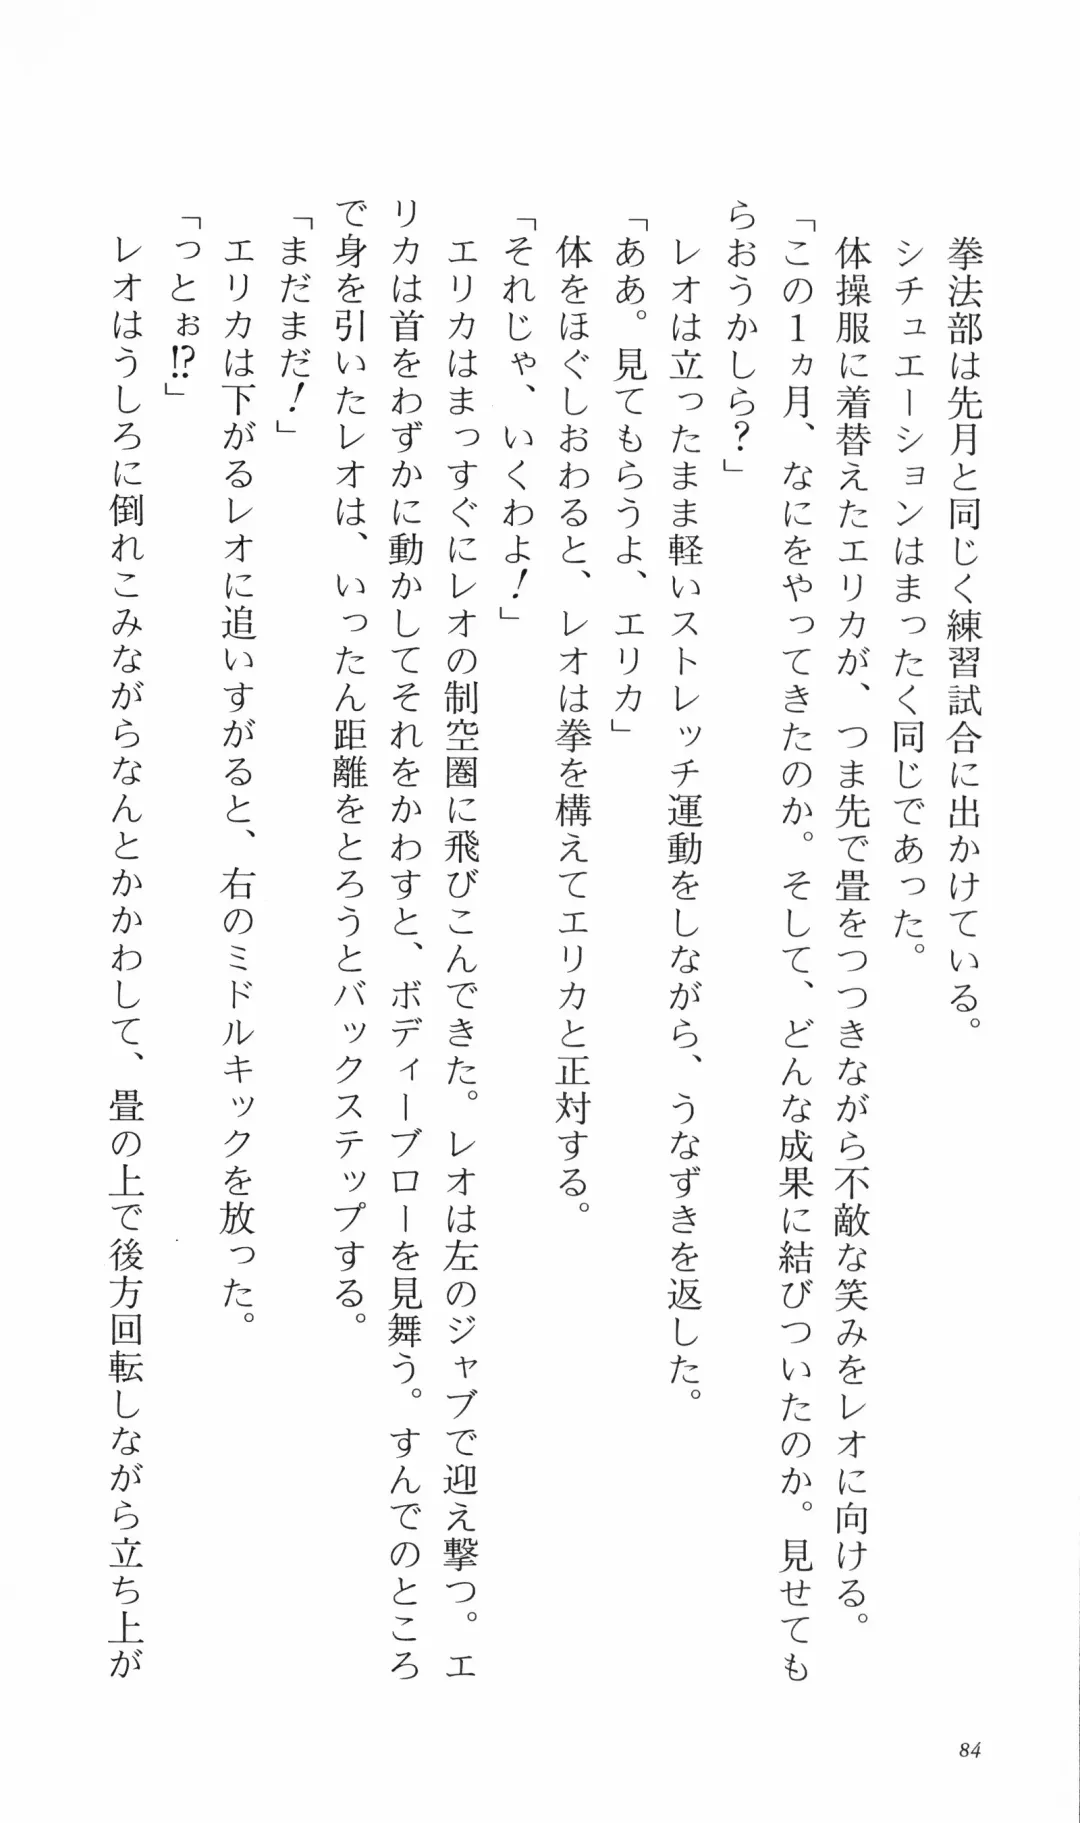 拳法部は先月と同じく練習試合に出かけている。
シチュエーションはまったく同じであった。
体操服に着替えたエリカが、つま先で畳をつつきながら不敵な笑みをレオに向ける。
「この1ヵ月、なにをやってきたのか。そして、どんな成果に結びついたのか。見せても
らおうかしら?」
レオは立ったまま軽いストレッチ運動をしながら、うなずきを返した。
「ああ。見てもらうよ、エリカ」
体をほぐしおわると、レオは拳を構えてエリカと正対する。
「それじゃ、いくわよ!」
エリカはまっすぐにレオの制空圏に飛びこんできた。レオは左のジャブで迎え撃つ。エ
リカは首をわずかに動かしてそれをかわすと、ボディーブローを見舞う。すんでのところ
で身を引いたレオは、いったん距離をとろうとバックステップする。
「まだまだ!」
エリカは下がるレオに追いすがると、右のミドルキックを放った。
「っとぉ!?」
レオはうしろに倒れこみながらなんとかかわして、畳の上で後方回転しながら立ち上が
84